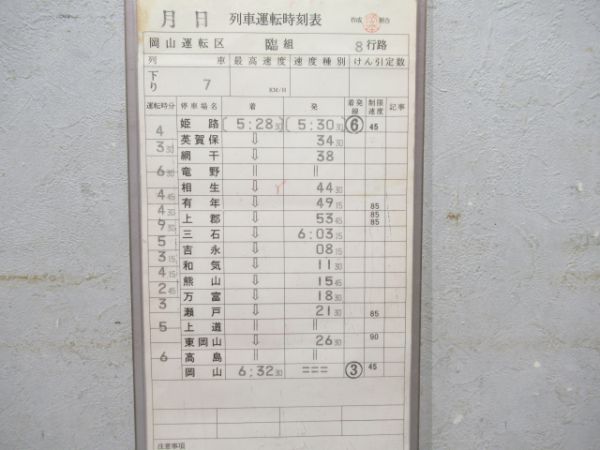 月 日 列車運転時刻表 作成 照合
岡山運転区 臨組 8行路
列 車 最高速度 速度種別 けん引定数
下り 7 KM/H
運転時分 停車場名 着 発 着発線 制限速度 記事
姫路 (5:28 30) (5:30 30) ⑥ 45
4 英賀保 ⇓ 34 30
3 30 網干 ⇓ 38
竜野 || ||
6 30 相生 ⇓ 44 30
4 45 有年 ⇓ 49 15 85
4 30 上郡 ⇓ 53 45 85 85
9 30 三石 ⇓ 6:03 15
5 吉永 ⇓ 08 15
3 15 和気 ⇓ 11 30
4 15 熊山 ⇓ 15 45
2 45 万富 ⇓ 18 30
3 瀬戸 ⇓ 21 30 85
上道 || ||
5 東岡山 ⇓ 26 30 90
高島 || ||
6 岡山 6:32 30 === ③ 45
注意事項